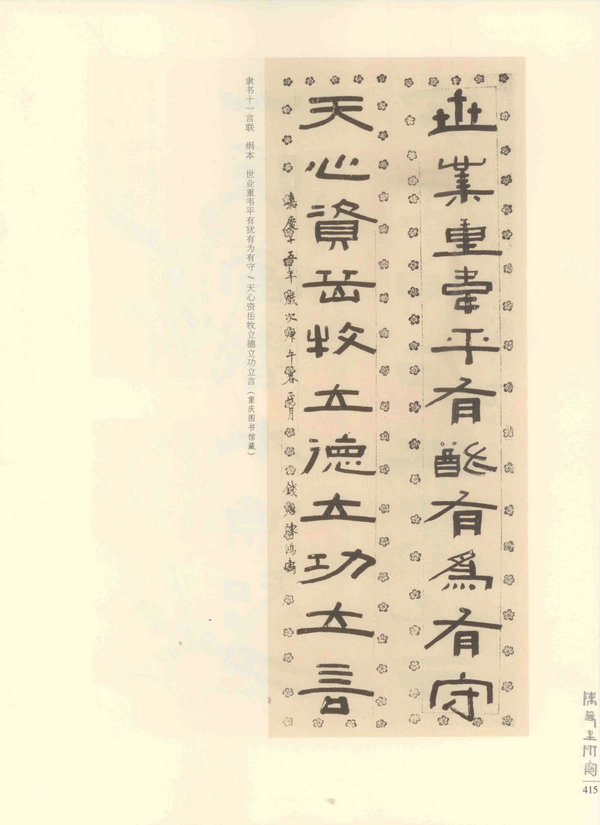 世業重韋平有猷有爲有守
天心資岳牧立德立功立言
嘉慶十五年歲次庚午春 月 錢唐陳鴻壽
隶书十一言联 绢本 世业重韦平有犹有为有守／天心资岳牧立德立功立言（重庆图书馆藏）
陳曼生研究
415